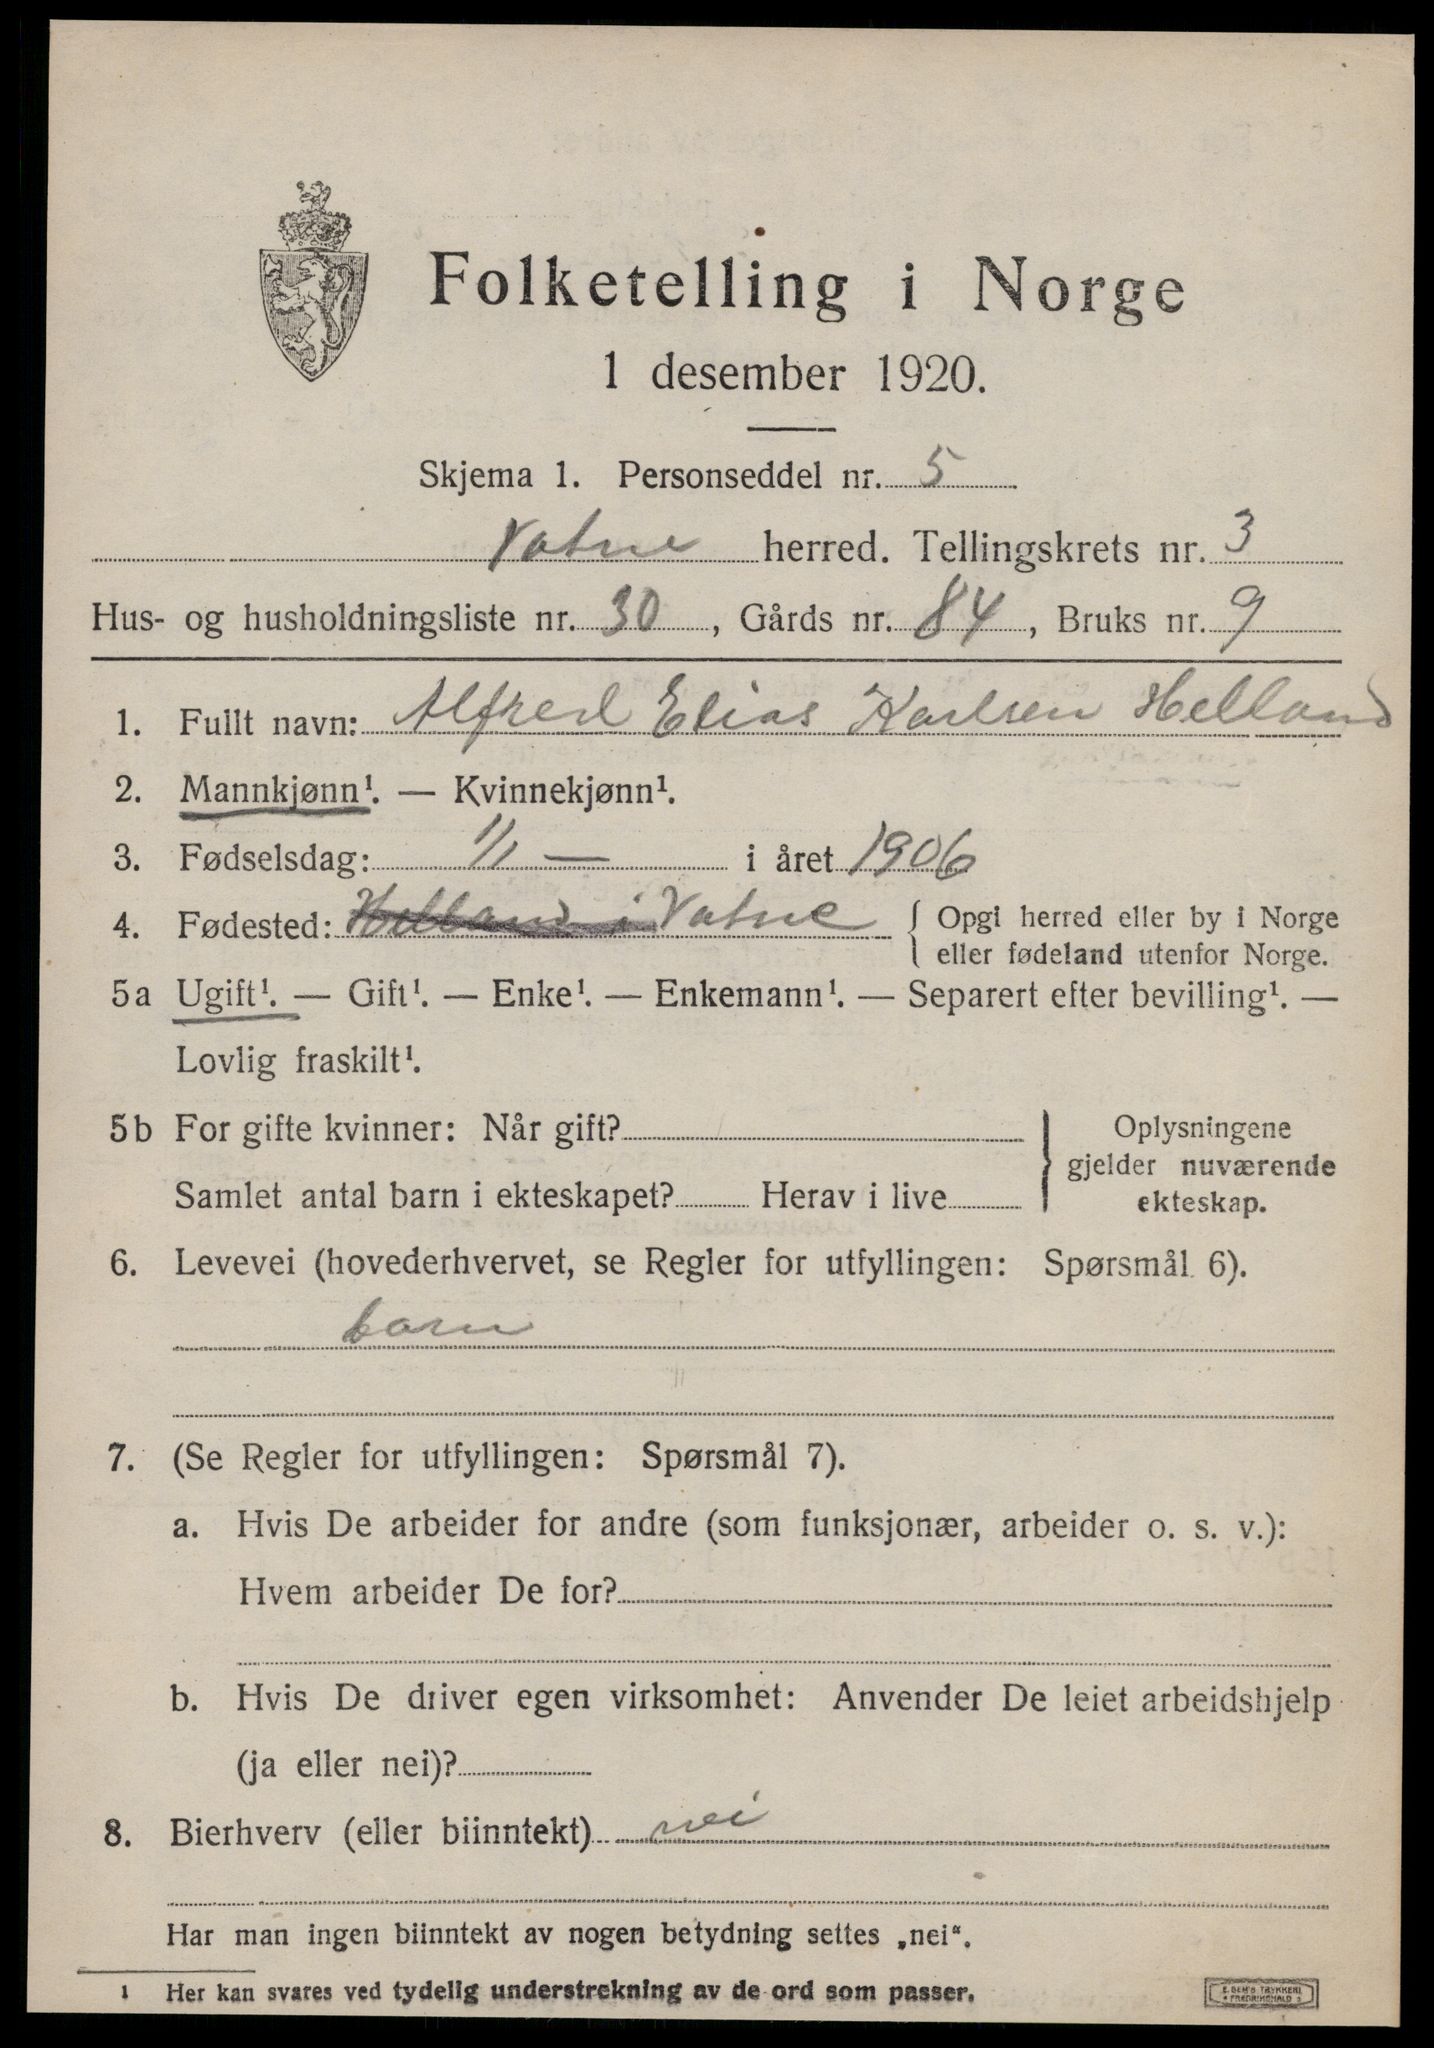 Folketelling i Norge
1 desember 1920.
Skjema 1. Personseddel nr. 5
Vatne herred. Tellingskrets nr. 3
Hus- og husholdningsliste nr. 30, Gårds nr. 84, Bruks nr. 9
1. Fullt navn: Alfred Elias Karlsen Helland
2. Mannkjønn¹. — Kvinnekjønn¹.
3. Fødselsdag: 1/1 — i året 1906
4. Fødested: Helland i Vatne { Opgi herred eller by i Norge
eller fødeland utenfor Norge.
5a Ugift¹. — Gift¹. — Enke¹. — Enkemann¹. — Separert efter bevilling¹. —
Lovlig fraskilt¹.
5b For gifte kvinner: Når gift?
Samlet antal barn i ekteskapet? Herav i live
} Oplysningene
gjelder nuværende
ekteskap.
6. Levevei (hovederhvervet, se Regler for utfyllingen: Spørsmål 6).
barn
7. (Se Regler for utfyllingen: Spørsmål 7).
a. Hvis De arbeider for andre (som funksjonær, arbeider o. s. v.):
Hvem arbeider De for?
b. Hvis De driver egen virksomhet: Anvender De leiet arbeidshjelp
(ja eller nei)?
8. Bierhverv (eller biinntekt) nei
Har man ingen biinntekt av nogen betydning settes „nei“.
1 Her kan svares ved tydelig understrekning av de ord som passer.
E. SEM'S TRYKKERI
FREDRIKSHALD